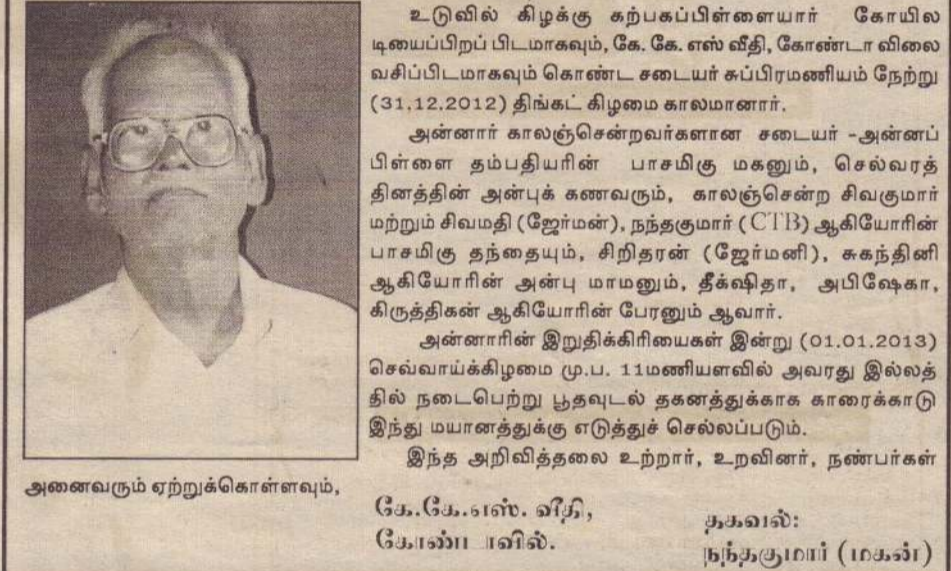 உடுவில் கிழக்கு கற்பகப்பிள்ளையார் கோயில
டியைப்பிறப் பிடமாகவும், கே. கே. எஸ் வீதி, கோண்டா விலை
வசிப்பிடமாகவும் கொண்ட சடையர் சுப்பிரமணியம் நேற்று
(31,12.2012) திங்கட் கிழமை காலமானார்.
அன்னார் காலஞ்சென்றவர்களான சடையர் -அன்னப்
பிள்ளை தம்பதியரின் பாசமிகு மகனும், செல்வரத்
தினத்தின் அன்புக் கணவரும், காலஞ்சென்ற சிவகுமார்
மற்றும் சிவமதி (ஜேர்மன்), நந்தகுமார் (CTB) ஆகியோரின்
பாசமிகு தந்தையும், சிறிதரன் (ஜேர்மனி), சுகந்தினி
ஆகியோரின் அன்பு மாமனும், தீக்ஷிதா, அபிஷேகா,
கிருத்திகன் ஆகியோரின் பேரனும் ஆவார்.
அன்னாரின் இறுதிக்கிரியைகள் இன்று (01.01.2013)
செவ்வாய்க்கிழமை மு.ப. 11மணியளவில் அவரது இல்லத்
தில் நடைபெற்று பூதவுடல் தகனத்துக்காக காரைக்காடு
இந்து மயானத்துக்கு எடுத்துச் செல்லப்படும்.
இந்த அறிவித்தலை உற்றார், உறவினர், நண்பர்கள்
அனைவரும் ஏற்றுக்கொள்ளவும்,
கே.கே.எஸ். வீதி,
கோண்டாவில்.
தகவல்:
நந்தகுமார் (மகன்)